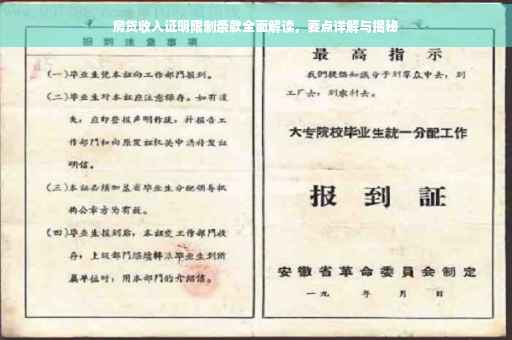 房贷收入证明限制条款全面解读，要点详解与揭秘
报到注意事项
(一)毕业生凭本证向工作部门报到。
(二)毕业生对本证应注意保存。如有遗
失，应即登报声明作废，并报告工
作部门和向原发证机关申请补发证
明信。
(三)本证必须加盖省毕业生分配领导机
构公章方为有效。
(四)毕业生报到后，本证交工作部门收
存，上级部门继续转派毕业生到所
属单位时，用本部门的介绍信。
最高指示
我们提倡知识分子到群众中去，到
工厂去，到农村去。
大专院校毕业生统一分配工作
报到证
安徽省革命委员会制定
一九 年 月 日